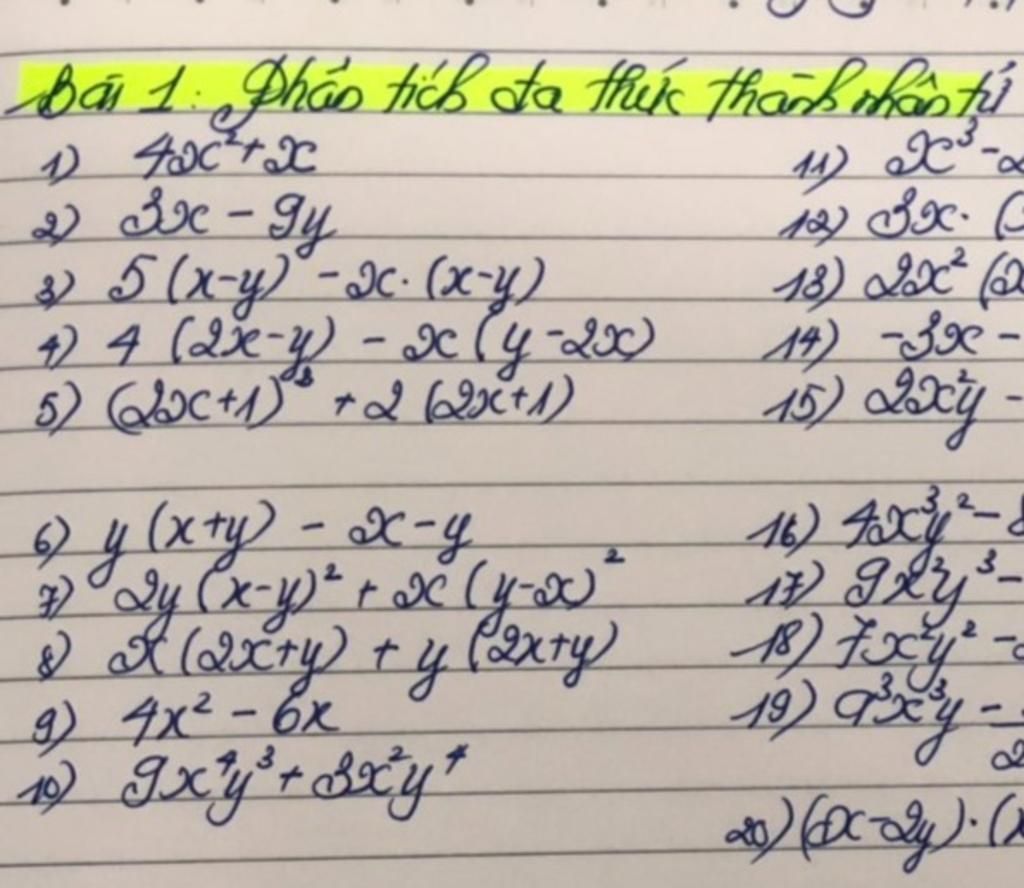 Bài 1: Phân tích đa thức thành nhân tử
1) 4x²+x
2) 3x - 9y
3) 5 (x-y) - x. (x-y)
4) 4 (2x-y) - x (y-2x)
5) (2x+1)² + 2 (2x+1)
6) y (x+y) - x - y
7) 2y (x-y)² + x (y-x)²
8) x (2x+y) + y (2x+y)
9) 4x² - 6x
10) 9x⁴y³ + 3x²y⁴
11) x³ -
12) 3x. (
13) 2x² (
14) -3x -
15) 2x²y -
16) 4x³y² -
17) 9x²y³ -
18) 7x²y² -
19) 9³x³y -
20) (x-2y). (